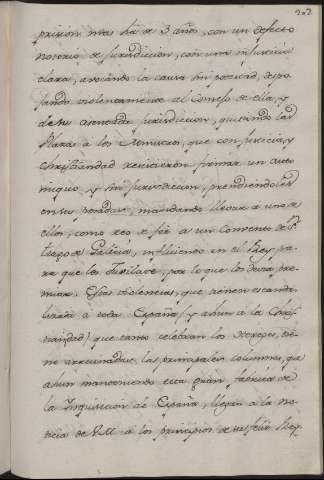 202
prision mas ha de 3 años, con un defecto
notorio de jurisdiccion, con una injusticia
clara, avocando la causa sin potestad, despo
jando violentamente al Consejo de ella, y
de su asentada jurisdiccion, quitando las
Plazas a los Ministros, que con justicia, y
christiandad resistieron firmar un auto
iniquo, y sin jurisdiccion, prendiendolos
en sus posadas, mandando llevar a uno de
ellos, como reo de fee a un Convento de
de Galicia, influiendo en el Rey pa
ra que los Jubilase, por lo que los devia pre
miar. Estas violencias, que tienen escanda
lizada a toda España, (y ahun a la Chris
tiandad) que tanto celebran los Hereges, tie
ne arruinadas las principales columnas, que
ahun manteniendo esta gran fabrica de
la Inquisicion de España, llegan a la no
ticia de V.M. a los principios de su feliz Rey